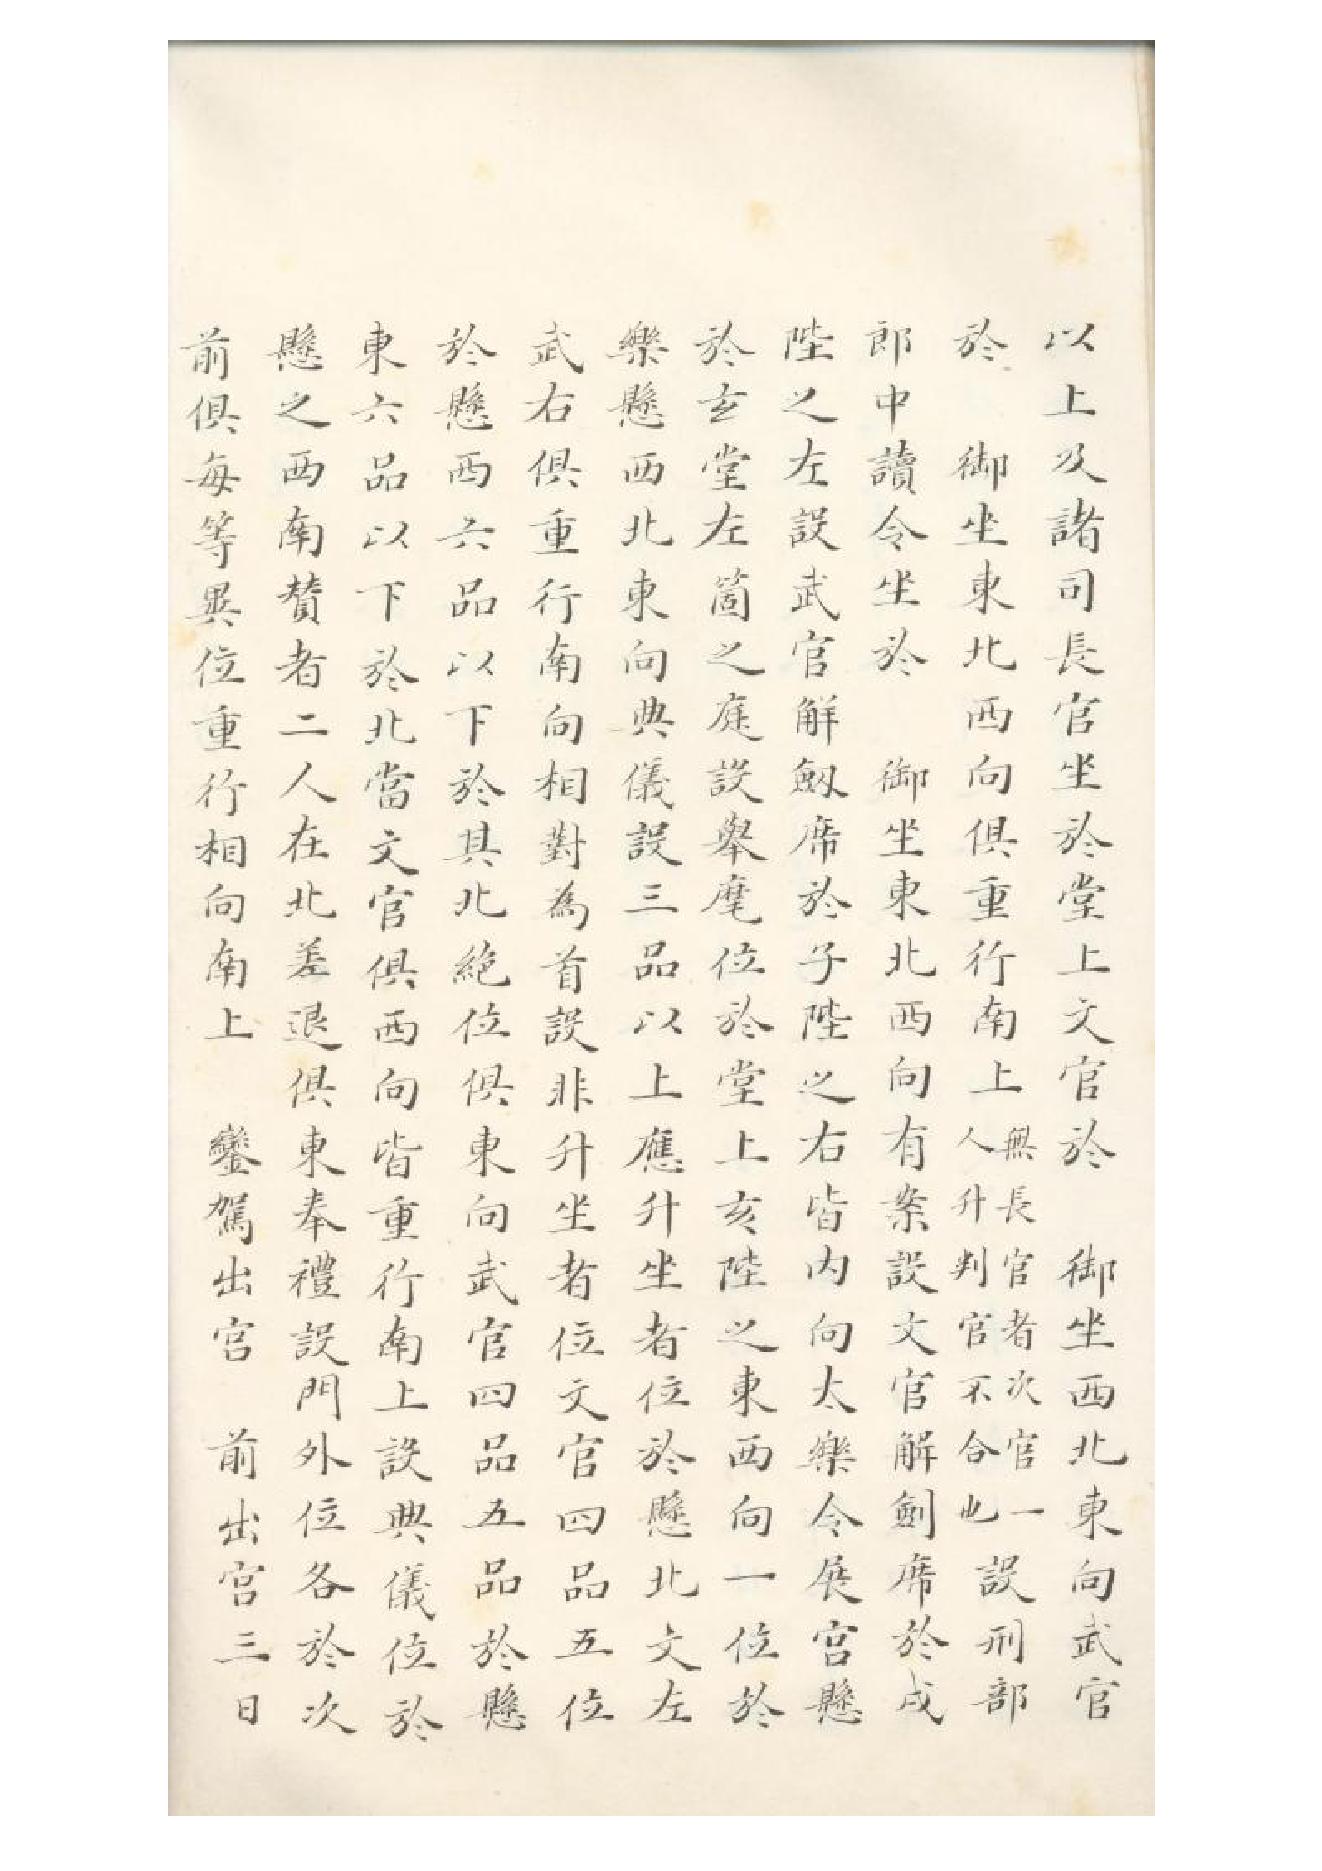 以上及諸司長官坐於堂上文官於　御坐西北東向武官
於　御坐東北西向俱重行南上無長官者次官一人升判官不合也設刑部
郎中讀令坐於　御坐東北西向有案設文官解劍席於戌
陛之左設武官解劔席於子陛之右皆內向太樂令展宮懸
於玄堂左箇之庭設舉麾位於堂上亥陛之東西向一位於
樂懸西北東向典儀設三品以上應升坐者位於懸北文左
武右俱重行南向相對為首設非升坐者位文官四品五位
於懸西六品以下於其北絕位俱東向武官四品五品於懸
東六品以下於北當文官俱西向皆重行南上設典儀位於
懸之西南贊者二人在北差退俱東奉禮設門外位各於次
前俱每等異位重行相向南上　鑾駕出宮　前出宮三日